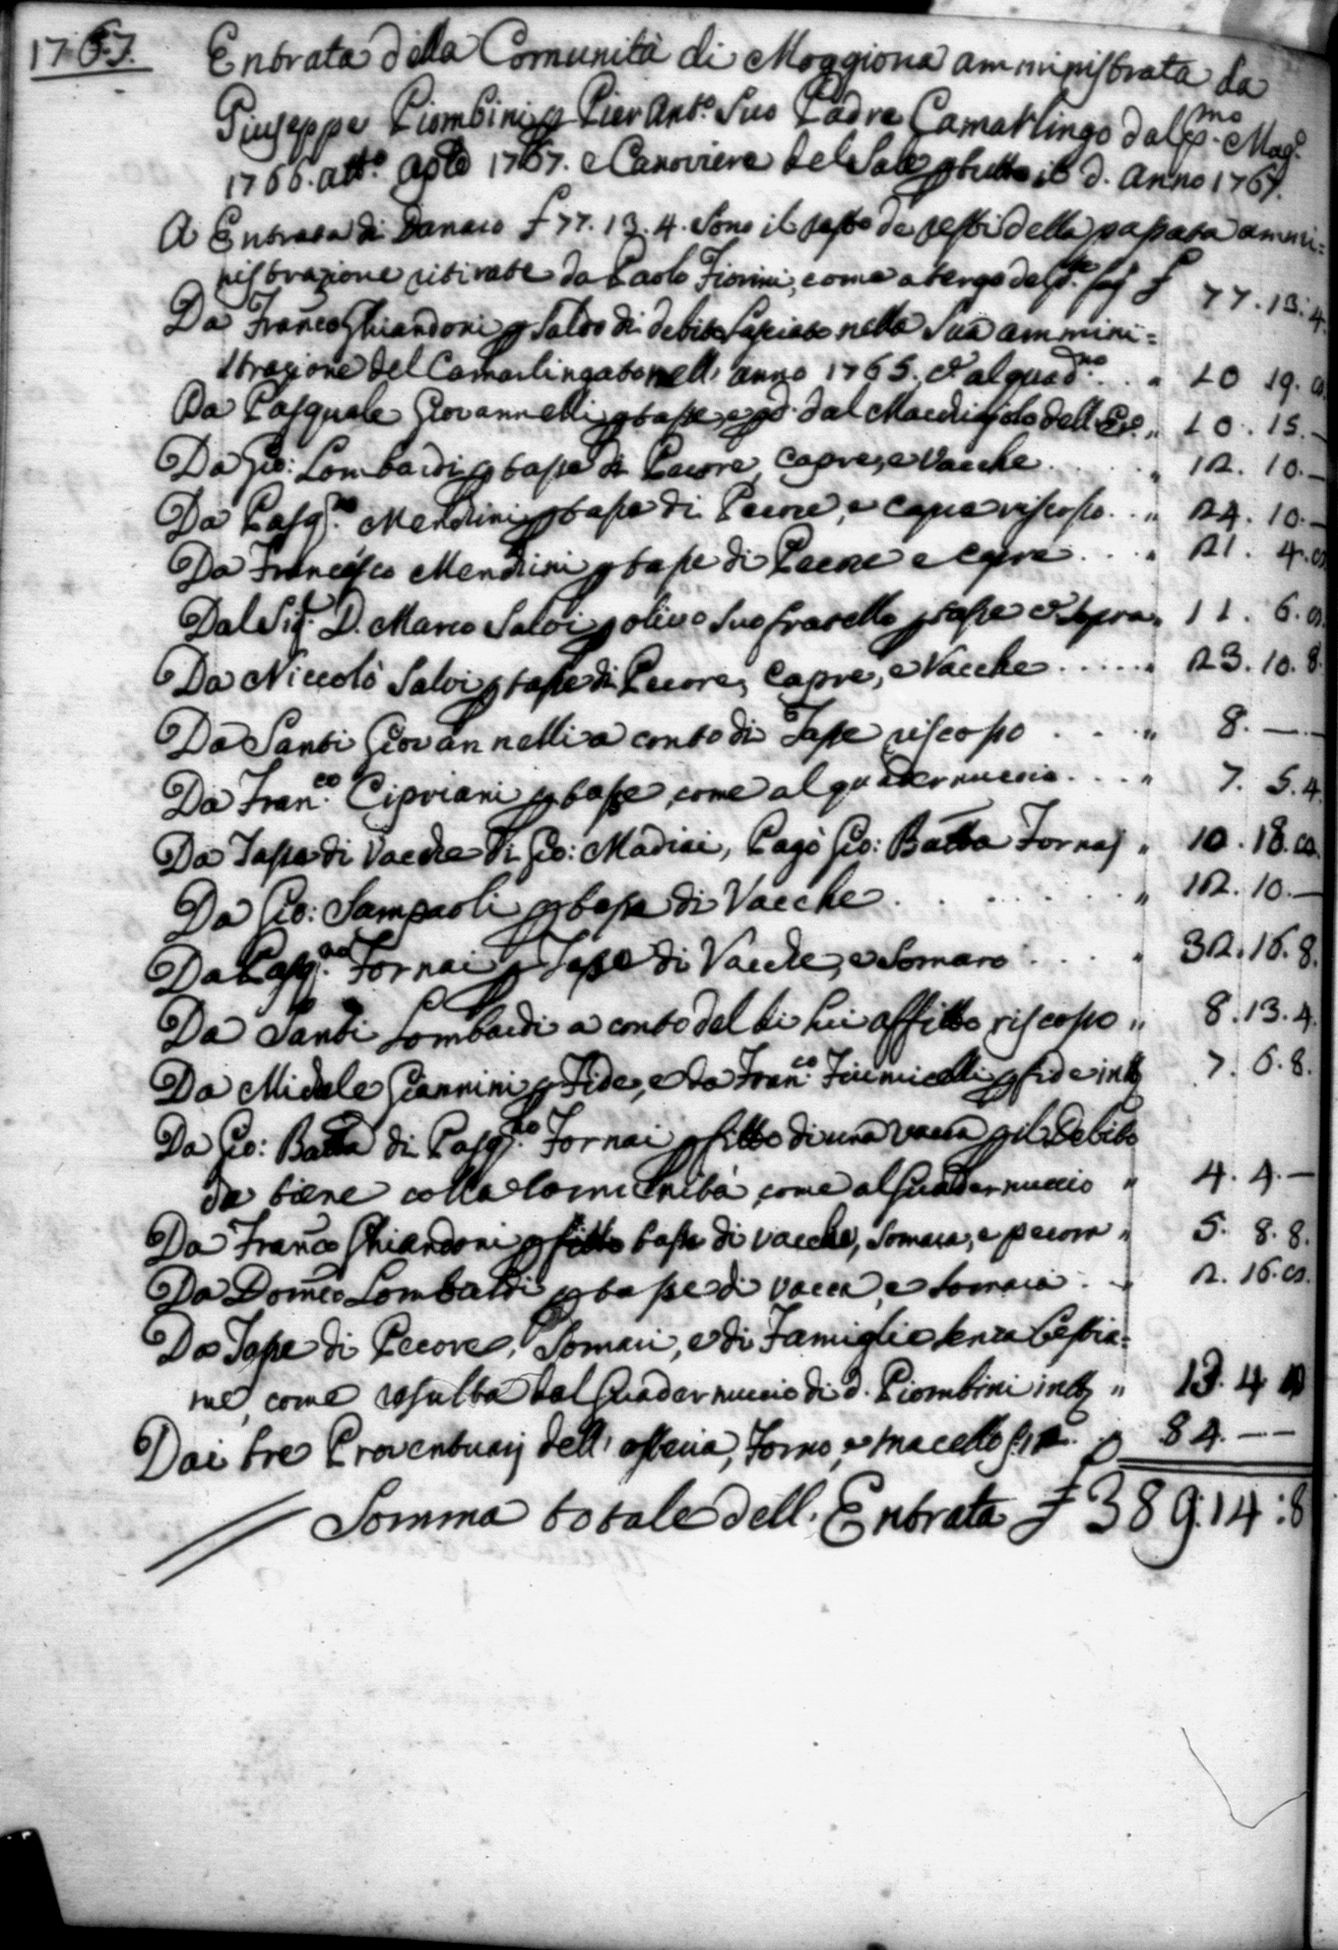 1767.
Entrata della Comunità di Moggiona amministrata da
Giuseppe Piombini p Pier Ant.o Suo Padre Camarlingo dal p.mo Mag.o
1766. att.o Aple 1767. e Canoviere del Sale p tutto il d. Anno 1767.
A Entrata di Danaro £ 77. 13. 4. Sono il resto de resti della passata ammi=
nistrazione ritirate da Paolo Fiorini, come a tergo del £ 77. 13. 4.
Da Franco Ghiandoni p Saldo di debito lasciato nella Sua ammini=
strazione del Camarlingato nell' anno 1765. " 10 19.
Da Pasquale Giovannelli p tasse, e dal " 10. 15. _
Da Gio: Lombardi p tasse di Pecore, capre, e Vacche " 12. 10. _
Da Pasq.le Mendrini p tasse di Pecore, e capre riscosso. " 24. 10. _
Da Francesco Mendrini p tasse di Pecore e capre " 21. 4.
Dal Sig.r D. Marco Salvi p olivo Suo fratello p tasse " 11. 6.
Da Niccolò Salvi p tasse di Pecore, Capre, e Vacche ..... " 23. 10. 8.
Da Santi Giovannelli a conto di Tasse riscosso . . . " 8. __
Da Fran.co Cipriani p tasse come al quadernuccio .... " 7. 5. 4.
Da Tassa di Vacche di Gio: Madiai, Pagò Gio: Batta Fornaj " 10. 18.
Da Gio: Sampaoli p tasse di Vacche . . . . . . " 12. 10. _
Da Pasq.le Fornai p Tasse di Vacche, e Somaro . . . . " 32. 16. 8.
Da Santi Lombardi a conto del di lui affitto riscosso " 8. 13. 4.
Da Michele Giannini p Fide, e da Fran.co Fiumicelli p fide in tt 7. 6. 8.
Da Gio: Batta di Pasq.le Fornai p fitto di una vacca p il debito
che tiene colla Comunità, come al Quadernuccio " 4. 4. _
Da Franco Ghiandoni p tasse di vacche, Somara, e pecora " 5. 8. 8.
Da Domco Lombardi p tasse di vacca, e Somara . " 2. 16.
Da Tasse di Pecore, Somari, e di Famiglie senza bestia=
me, come resulta dal Quadernuccio di d. Piombini in tt " 13. 4
Dai tre Proventuarj dell' osteria, Forno, e macello " 84. __
Somma totale dell' Entrata £ 389. 14 : 8